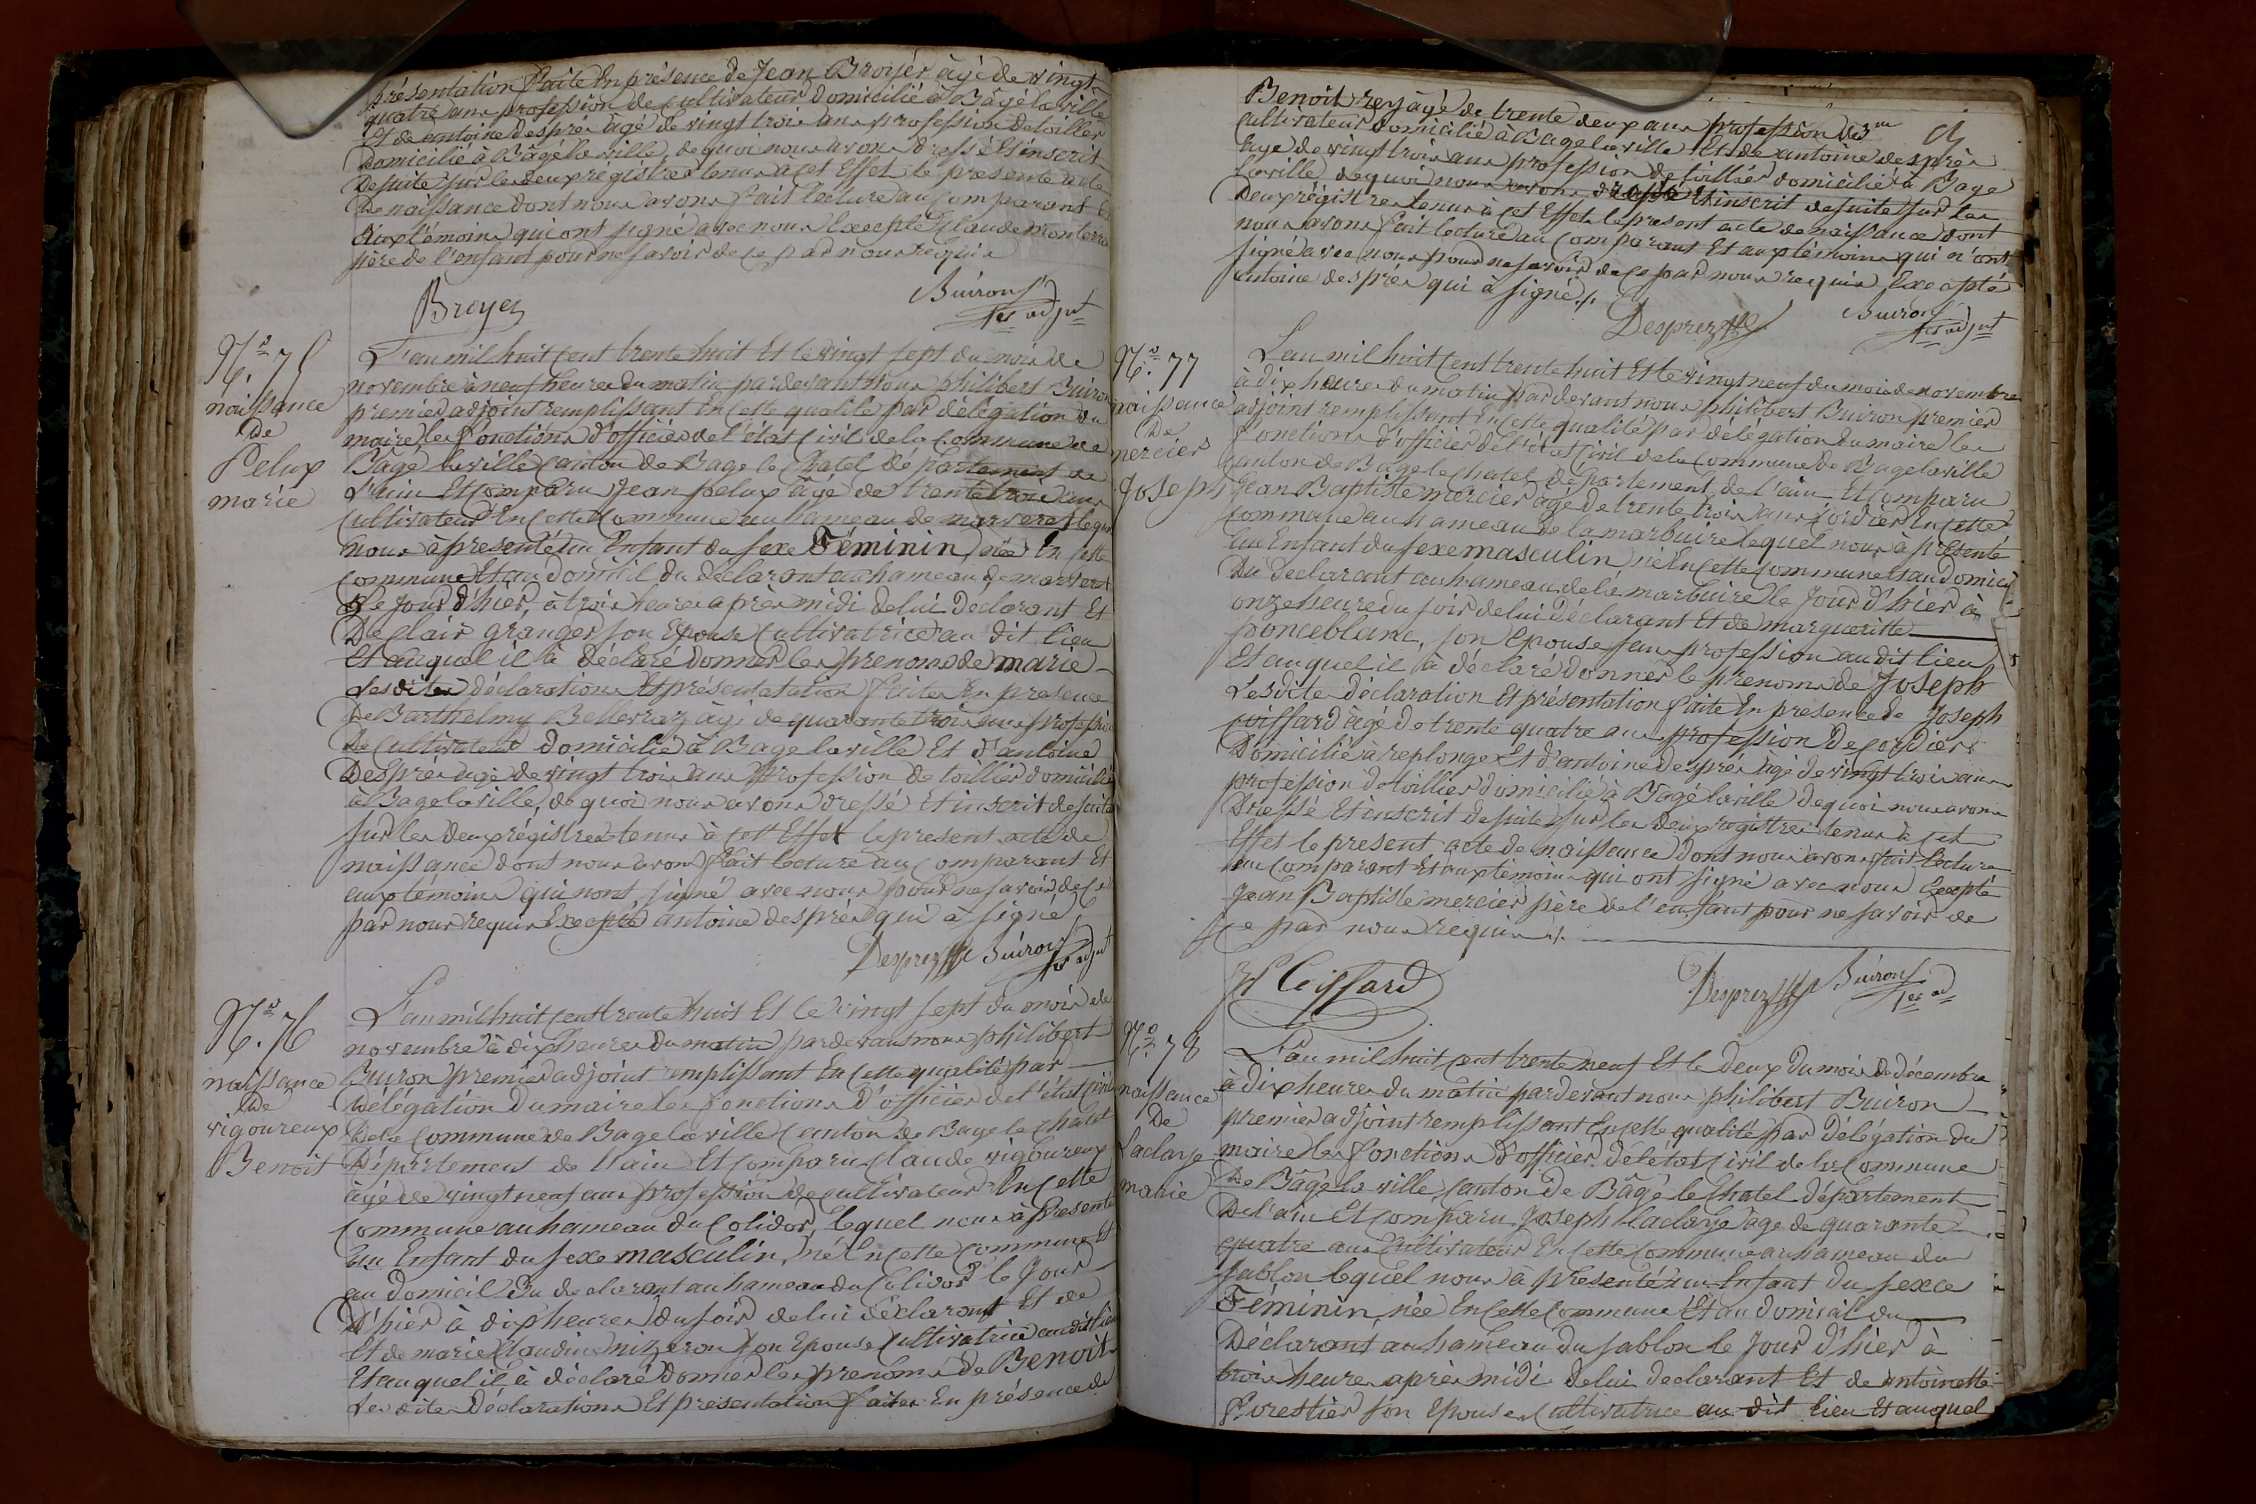 présentation faite En présence de Jean Broyer âgé de vingt
quatre ans profession de cultivateur domicilié à Bâgé la ville
et de antoine desprès âgé de vingt trois ans profession de toillier
domicilié à Bâgé la ville, de quoi nous avons dressé Et inscrit
de suite sur les deux régistres tenus à cet Effet le présente acte
De naissance dont nous avons fait lecture au Comparant Et
aux témoins qui ont signé avec nous Excepté Claude
père de l'enfant pour ne savoir de ce par nous requis
Broyer Buiron
1er adjt
N°. 75
naissance
De
Pelux
marie
L'an mil huit Cent trente huit Et le vingt sept du mois de
novembre à neuf heures du matin pardevant Nous philibert Buiron
premier adjoint remplissant En cette qualité par délégation du
maire les fonctions d'officier de l'état Civil de la Commune de
Bâgé la ville Canton de Bage le Chatel département de
L'ain Et Comparu Jean pelux âgé de trente trois ans
Cultivateur En cette Commune au hameau de lequel
nous à présenté un Enfant du sexe Féminin née En cette
Commune Et au domicil du déclarant au hameau de
Le Jour d'hier, à trois heures après midi de lui Déclarant Et
De clair granger son Epouse Cultivatrice au dit lieu
Et auquel il à déclaré donner les prenoms de marie
Lesdites déclarations Et présentatation faites En presence
De Barthelmy Belleviaz âgé de quarante trois ans profession
De Cultivateur domicilié à Bage la ville Et d'antoine
Desprès âgé de vingt trois ans profession de toillier domicilié
à Bage la ville, de quoi nous avons dressé Et inscrit de suite
sur les deux régistres tenus à cet Effet le present acte de
naissance dont nous avons fait lecture au Comparant Et
aux témoins qui nont signé avec nous pour ne savoir de Ce
par nous requis Excepté antoine desprès qui à signé
Desprez Buiron
1er adjt
N°. 76
naissance
De
vigoureux
Benoit
L'an mil huit Cent trente huit Et le vingt sept du mois de
novembre à dix heures du matin pardevant nous philibert
Buiron premier adjoint remplissant En cette qualité par
délégation du maire les fonctions d'officier de l'état Civil
De la Commune de Bage la ville Canton de Bage le Chatel
Département de l'ain Et Comparu Claude vigoureux
âgé de vingt neuf ans profession de cultivateur En cette
Commune au hameau du Colidor, lequel nous à presenté
un Enfant du sexe masculin né En cette Commune Et
au domicil Du declarant au hameau du Colidor le Jour
D'hier à dix heures du soir de lui déclarant Et de
Et de marie Claudine mizeron son Epouse Cultivatrice au dit lieu
Et auquel il à déclaré donner les prenoms de Benoit
Les dites Déclarations Et présentation faites En présence de
Benoit rey âgé de trente deux ans profession de
Cultivateur domicilié à Bage la ville Et de antoine desprès
âgé de vingt trois ans profession de toillier domicilié à Bage
la ville de quoi nous avons dressé Et inscrit de suite sur les
deux régistres tenus à cet Effet le present acte de naissance dont
nous avons fait lecture au Comparant Et aux témoins qui n'ont
signé avec nous pour ne savoir de ce par nous requis Excepté
antoine desprès qui à signé
Desprez Buiron
1er adjt
N°. 77
naissance
De
mercier
Joseph
L'an mil huit Cent trente huit Et le vingt neuf du mois de novembre
à dix heures du matin pardevant nous philibert Buiron premier
adjoint remplissant En cette qualité par délégation du maire les
fonctions d'officier de l'état Civil de la Commune de Bage la ville
Canton de Bage le Chatel département de l'ain Et Comparu
Jean Baptiste mercier âgé de trente trois ans Cordier En cette
Commune au hameau de la marbuire lequel nous à présenté
un Enfant du sexe masculin né En cette Commune Et au domicil
Du Déclarant au hameau de la marbuire le Jour d'hier à
onze heure du soir de lui déclarant Et de margueritte
ponceblanc, son Epouse sans profession au dit lieu
Et auquel il à déclaré donner le prenoms de Joseph
Lesdite déclaration Et présentation faite En presence de Joseph
coiffard âgé de trente quatre ans profession De Cordier
Domicilié à replonge Et d'antoine desprès âgé de vingt trois ans
profession de toillier domicilié à Bagé la ville de quoi nous avons
Dressé Et inscrit de suite sur les deux registres tenus à cet
Effet le present acte de naissance dont nous avons fait lecture
au Comparant Et aux témoins qui ont signé avec nous Excepté
Jean Baptiste mercier père de l'enfant pour ne savoir de
Ce par nous requis
Desprez Buiron
1er ad
N°. 78
naissance
De
Laclaye
marie
L'an mil huit Cent trente neuf Et le Deux du mois de décembre
à dix heures du matin pardevant nous philibert Buiron
premier adjoint remplissant En cette qualité par délégation du
maire les fonctions d'officier de létat Civil de la Commune
De Bâgé la ville, Canton De Bâgé le Chatel département
De l'ain Et Comparu Joseph Laclaye âgé de quarante
quatre ans Cultivateur En cette Commune au hameau du
sablon lequel nous à presenté un Enfant du sexce
Féminin, née En cette Commune Et au domicil du
Déclarant au hameau du sablon le Jour d'hier à
trois heures après midi de lui declarant Et de antoinette
forestier son Epouse Cultivatrice au dit lieu Et auquel